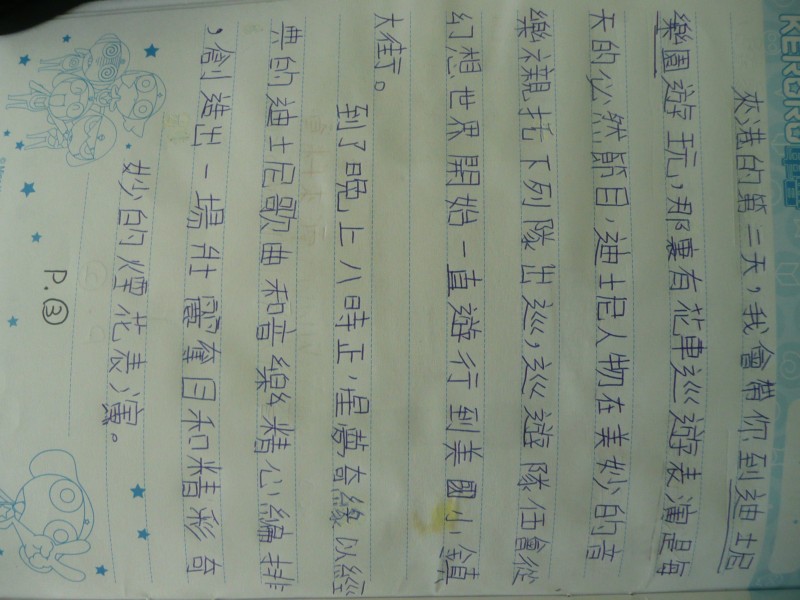 KERORO軍曹
來港的第二天，我會帶你到迪士尼
樂園遊玩，那裏有花車巡遊表演是每
天的必然節目，迪士尼人物在美妙的音
樂襯托下列隊出巡，巡遊隊伍會從
幻想世界開始一直遊行到美國小鎮
大街。
到了晚上八時正，星夢奇緣以經
典的迪士尼歌曲和音樂精心編排
，創造出一場壯麗奪目和精彩奇
妙的煙花表演。
P.③